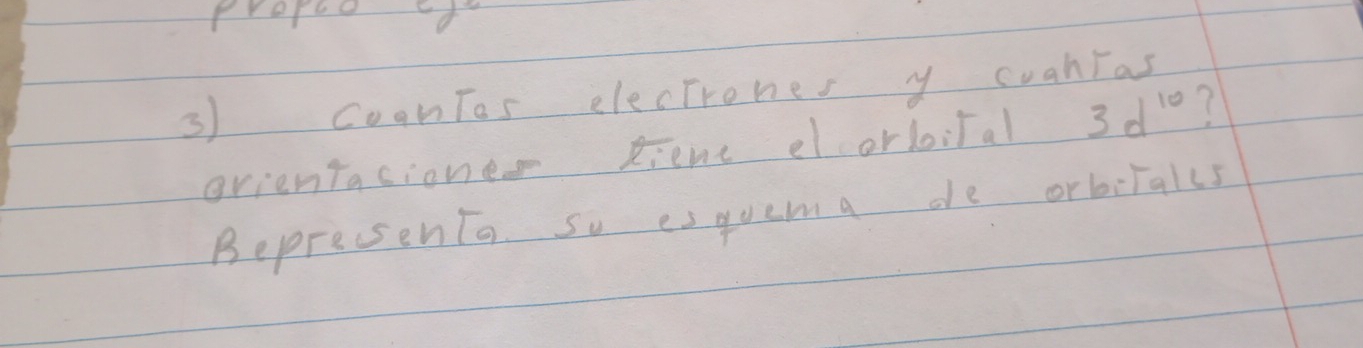 propio eje
3) Cuantos electrones y cuantas
orientaciones tiene el orbital 3d¹⁰?
Representa su esquema de orbitales